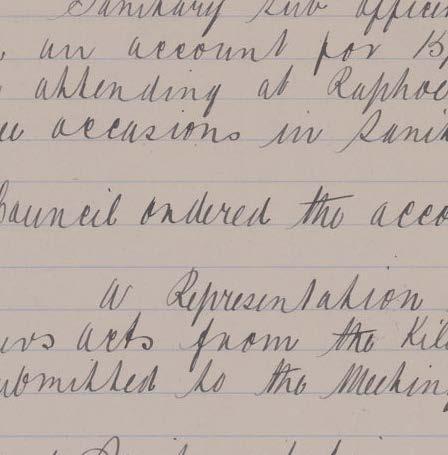 Sanitary Sub office
an account for 15
attending at Raphoe
occasions in Sanit
Council ordered the acco
A Representation
acts from the Kil
ubmitted to the Meeting